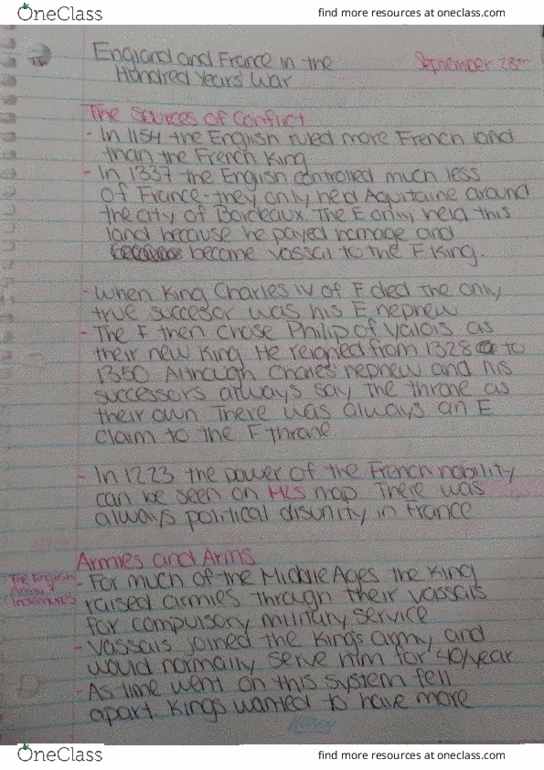 OneClass
find more resources at oneclass.com
England and France in the
September 28th
Hundred Years' War
The Sources of Conflict
- In 1154 the English ruled more French land
than the French King
- In 1337 the English controlled much less
of France - they only held Aquitaine around
the city of Bordeaux. The E only held this
land because he payed homage and
became vassal to the F King.
- When King Charles IV of F died the only
true succesor was his E nephew
- The F then chose Philip of Valois as
their new King. He reigned from 1328 to
1350. Although Charles' nephew and his
successors always say the throne as
their own. There was always an E
claim to the F throne.
- In 1223 the power of the French nobility
can be seen on MLS map. There was
always political disunity in France
Armies and Arms
The English
- For much of the Middle Ages the King
raised armies through their vassals
for compulsory military service
- Vassals joined the King's army and
would normally serve him for 40/year
- As time went on this system fell
apart. Kings wanted to have more
OneClass
find more resources at oneclass.com